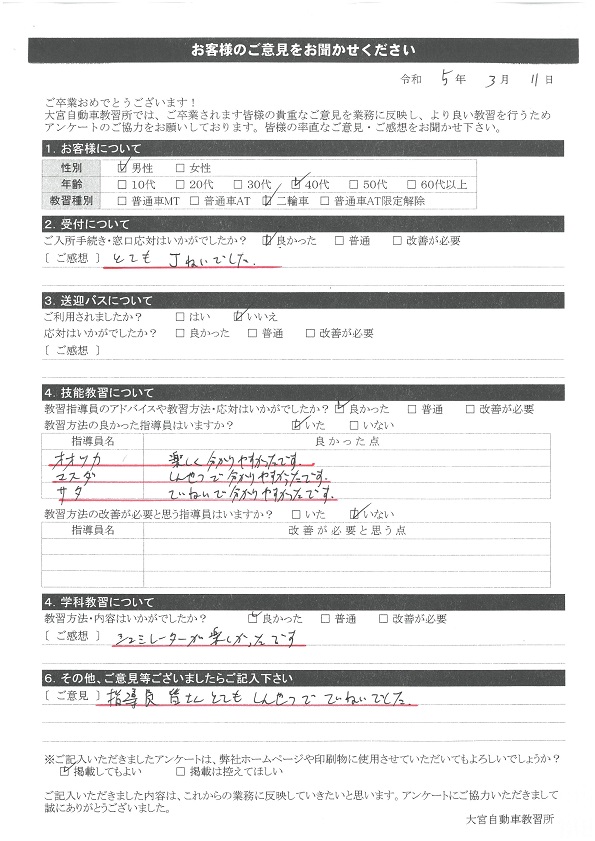 お客様のご意見をお聞かせください
令和 5年 3月 11日
ご卒業おめでとうございます！
大宮自動車教習所では、ご卒業されます皆様の貴重なご意見を業務に反映し、より良い教習を行うため
アンケートのご協力をお願いしております。皆様の率直なご意見・ご感想をお聞かせ下さい。
1. お客様について
性別 ☑男性 □女性
年齢 □10代 □20代 □30代 ☑40代 □50代 □60代以上
教習種別 □普通車MT □普通車AT ☑二輪車 □普通車AT限定解除
2. 受付について
ご入所手続き・窓口応対はいかがでしたか？ ☑良かった □普通 □改善が必要
[ ご感想 ] とても 丁ねいでした.
3. 送迎バスについて
ご利用されましたか？ □はい ☑いいえ
応対はいかがでしたか？ □良かった □普通 □改善が必要
[ ご感想 ]
4. 技能教習について
教習指導員のアドバイスや教習方法・応対はいかがでしたか？ ☑良かった □普通 □改善が必要
教習方法の良かった指導員はいますか？ ☑いた □いない
指導員名 良かった点
オオツカ 楽しく分かりやすかったです.
マスダ しんせつで分かりやすかったです.
サタ ていねいで分かりやすかったです.
教習方法の改善が必要と思う指導員はいますか？ □いた ☑いない
指導員名 改善が必要と思う点
4. 学科教習について
教習方法・内容はいかがでしたか？ ☑良かった □普通 □改善が必要
[ ご感想 ] シュミレーターが楽しかったです
6. その他、ご意見等ございましたらご記入下さい
[ ご意見 ] 指導員 皆さん とても しんせつで ていねいでした.
※ご記入いただきましたアンケートは、弊社ホームページや印刷物に使用させていただいてもよろしいでしょうか？
☑掲載してもよい □掲載は控えてほしい
ご記入いただきました内容は、これからの業務に反映していきたいと思います。アンケートにご協力いただきまして
誠にありがとうございました。
大宮自動車教習所